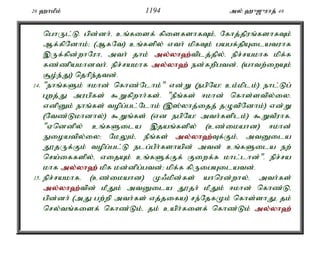 26 ஹாமீம் 1194 அல் ஹுஜுராத் 49
பொருட்டு. பின்னர், உங்களைக் கிளைகளாகவும், கோத்திரங்களாகவும்
ஆக்கினோம்; (ஆகவே) உங்களில் எவர் மிகவும் பயபக்தியுடையவராக
இருக்கின்றாரோ, அவர் தாம் அல்லாஹ்விடத்தில், நிச்சயமாக மிக்க
கண்ணியமானவர். நிச்சயமாக அல்லாஹ் நன்கறிபவன், (யாவற்றையும்
சூழ்ந்து) தெரிந்தவன்.
14. "நாங்களும் ஈமான் கொண்டோம்" என்று (நபியே! உம்மிடம்) நாட்டுப்
புறத்து அரபிகள் கூறுகிறார்கள். "நீங்கள் ஈமான் கொள்ளவில்லை.
எனினும் நாங்கள் வழிப்பட்டோம் (இஸ்லாத்தைத் தழுவினோம்) என்று
(வேண்டுமானால்) கூறுங்கள் (என நபியே! அவர்களிடம்) கூறுவீராக.
"ஏனெனில் உங்களுடைய இதயங்களில் (உண்மையான) ஈமான்
நுழையவில்லை; மேலும், நீங்கள் அல்லாஹ்வுக்கும், அவனுடைய
தூதருக்கும் வழிப்பட்டு நடப்பீர்களாயின் அவன் உங்களுடைய நற்
செய்கைகளில், எதையும் உங்களுக்குக் குறைக்க மாட்டான்". நிச்சய
மாக அல்லாஹ் மிக மன்னிப்பவன்; மிக்க கிருபையுடையவன்.
15. நிச்சயமாக, (உண்மையான) முஃமின்கள் யாரென்றால், அவர்கள்
அல்லாஹ்வின் மீதும் அவனுடைய தூதர் மீதும் ஈமான் கொண்டு,
பின்னர் (அது பற்றி அவர்கள் எத்தகைய) சந்தேகமும் கொள்ளாது, தம்
செல்வங்களைக் கொண்டும், தம் உயிர்களைக் கொண்டும் அல்லாஹ்